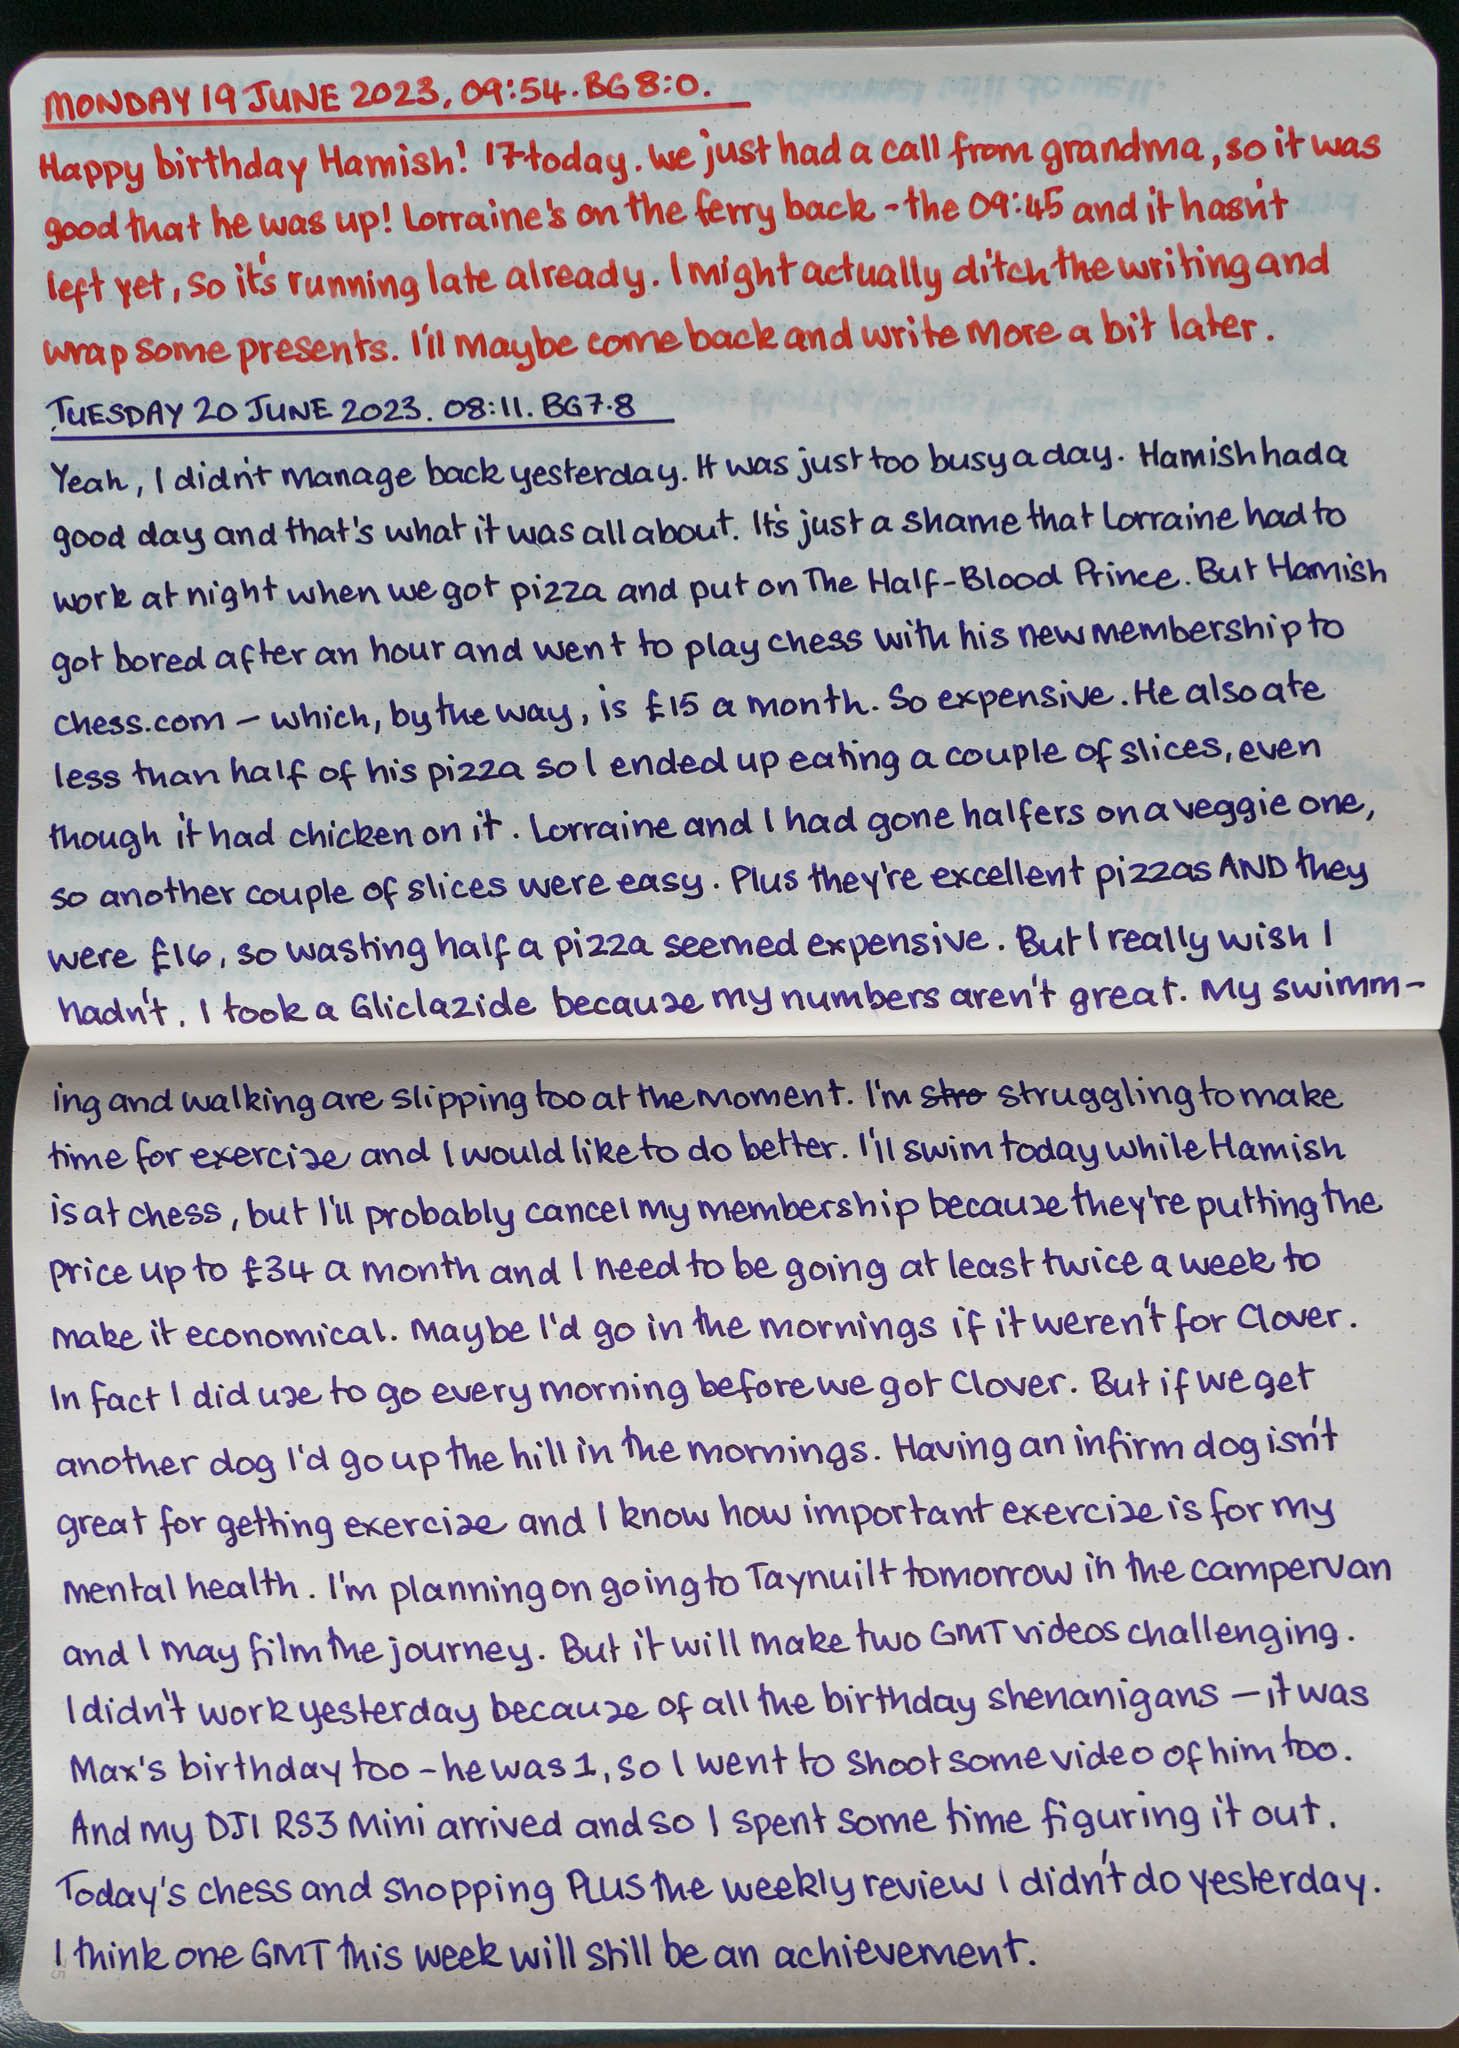 MONDAY 19 JUNE 2023, 09:54. BG 8:0.
Happy birthday Hamish! 17 today. We just had a call from grandma, so it was
good that he was up! Lorraine's on the ferry back - the 09:45 and it hasn't
left yet, so it's running late already. I might actually ditch the writing and
wrap some presents. I'll maybe come back and write more a bit later.
TUESDAY 20 JUNE 2023. 08:11. BG 7.8
Yeah, I didn't manage back yesterday. It was just too busy a day. Hamish had a
good day and that's what it was all about. It's just a shame that Lorraine had to
work at night when we got pizza and put on The Half-Blood Prince. But Hamish
got bored after an hour and went to play chess with his new membership to
chess.com - which, by the way, is £15 a month. So expensive. He also ate
less than half of his pizza so I ended up eating a couple of slices, even
though it had chicken on it. Lorraine and I had gone halfers on a veggie one,
so another couple of slices were easy. Plus they're excellent pizzas AND they
were £16, so wasting half a pizza seemed expensive. But I really wish I
hadn't. I took a Gliclazide because my numbers aren't great. My swimm-
ing and walking are slipping too at the moment. I'm stro struggling to make
time for exercise and I would like to do better. I'll swim today while Hamish
is at chess, but I'll probably cancel my membership because they're putting the
price up to £34 a month and I need to be going at least twice a week to
make it economical. Maybe I'd go in the mornings if it weren't for Clover.
In fact I did use to go every morning before we got Clover. But if we get
another dog I'd go up the hill in the mornings. Having an infirm dog isn't
great for getting exercise and I know how important exercise is for my
mental health. I'm planning on going to Taynuilt tomorrow in the campervan
and I may film the journey. But it will make two GMT videos challenging.
I didn't work yesterday because of all the birthday shenanigans - it was
Max's birthday too - he was 1, so I went to shoot some video of him too.
And my DJI RS3 Mini arrived and so I spent some time figuring it out.
Today's chess and shopping PLUS the weekly review I didn't do yesterday.
I think one GMT this week will still be an achievement.